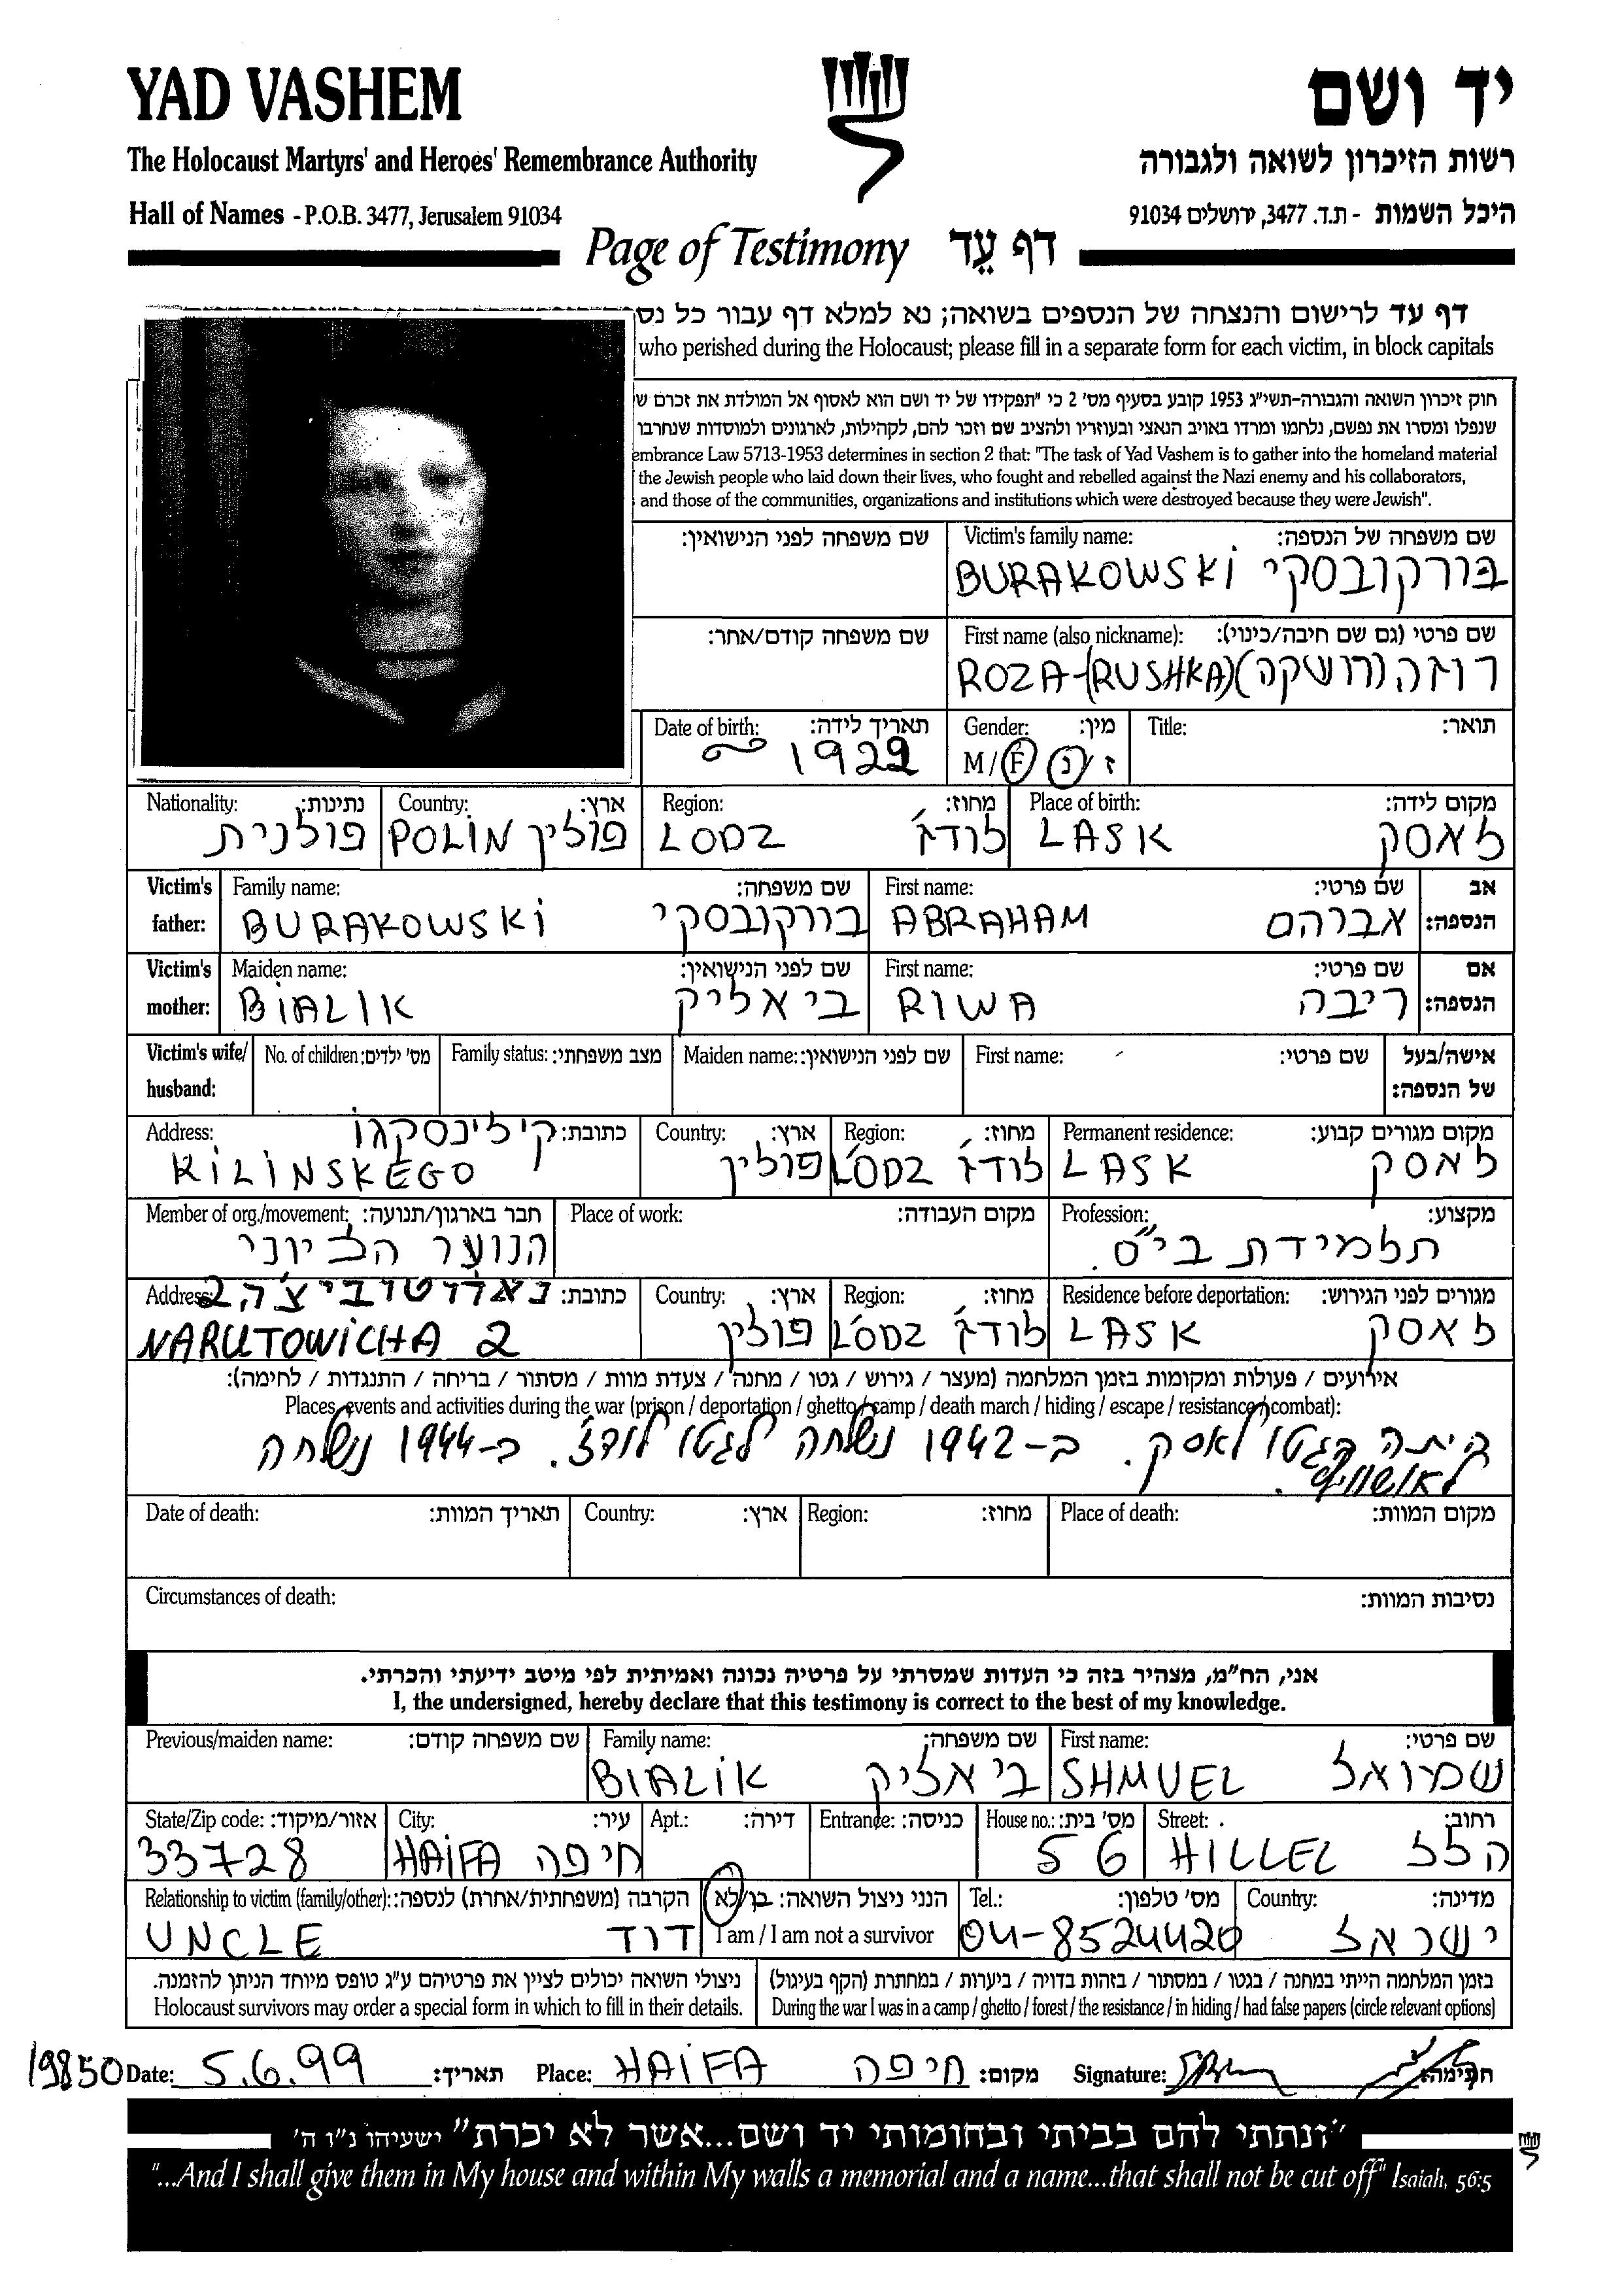 YAD VASHEM
יד ושם
The Holocaust Martyrs' and Heroes' Remembrance Authority
רשות הזיכרון לשואה ולגבורה
Hall of Names - P.O.B. 3477, Jerusalem 91034
היכל השמות - ת.ד. 3477, ירושלים 91034
Page of Testimony דף עֵד
דף עד לרישום והנצחה של הנספים בשואה; נא למלא דף עבור כל נס
who perished during the Holocaust; please fill in a separate form for each victim, in block capitals
חוק זיכרון השואה והגבורה-תשי"ג 1953 קובע בסעיף מס' 2 כי "תפקידו של יד ושם הוא לאסוף אל המולדת את זכרם ש
שנפלו ומסרו את נפשם, נלחמו ומרדו באויב הנאצי ובעוזריו ולהציב שם וזכר להם, לקהילות, לארגונים ולמוסדות שנחרבו
embrance Law 5713-1953 determines in section 2 that: "The task of Yad Vashem is to gather into the homeland material
the Jewish people who laid down their lives, who fought and rebelled against the Nazi enemy and his collaborators,
and those of the communities, organizations and institutions which were destroyed because they were Jewish".
שם משפחה לפני הנישואין: Victim's family name: שם משפחה של הנספה:
BURAKOWSKI בורקובסקי
שם משפחה קודם/אחר: First name (also nickname): שם פרטי (גם שם חיבה/כינוי):
ROZA-(RUSHKA) רוזה (רושקה)
Date of birth: תאריך לידה: Gender: מין: Title: תואר:
1922 M / F ז / נ
Nationality: נתינות: Country: ארץ: Region: מחוז: Place of birth: מקום לידה:
פולנית POLIN פולין LODZ לודז LASK לאסק
Victim's father: Family name: שם משפחה: First name: שם פרטי: אב הנספה:
BURAKOWSKI בורקובסקי ABRAHAM אברהם
Victim's mother: Maiden name: שם לפני הנישואין: First name: שם פרטי: אם הנספה:
BIALIK ביאליק RIWA ריבה
Victim's wife/ husband: No. of children: מס' ילדים: Family status: מצב משפחתי: Maiden name: שם לפני הנישואין: First name: שם פרטי: אישה/בעל של הנספה:
Address: כתובת: קילינסקגו Country: ארץ: Region: מחוז: Permanent residence: מקום מגורים קבוע:
KILINSKEGO פולין LODZ לודז LASK לאסק
Member of org./movement: חבר בארגון/תנועה: Place of work: מקום העבודה: Profession: מקצוע:
הנוער הציוני תלמידת בי"ס.
Address: כתובת: נארוטוביצ'ה 2 Country: ארץ: Region: מחוז: Residence before deportation: מגורים לפני הגירוש:
NARUTOWICHA 2 פולין LODZ לודז LASK לאסק
אירועים / פעולות ומקומות בזמן המלחמה (מעצר / גירוש / גטו / מחנה / צעדת מוות / מסתור / בריחה / התנגדות / לחימה):
Places, events and activities during the war (prison / deportation / ghetto / camp / death march / hiding / escape / resistance / combat):
היתה בגטו לאסק. ב-1942 נשלחה לגטו לודז'. ב-1944 נשלחה
לאושוויץ.
Date of death: תאריך המוות: Country: ארץ: Region: מחוז: Place of death: מקום המוות:
Circumstances of death: נסיבות המוות:
אני, הח"מ, מצהיר בזה כי העדות שמסרתי על פרטיה נכונה ואמיתית לפי מיטב ידיעתי והכרתי.
I, the undersigned, hereby declare that this testimony is correct to the best of my knowledge.
Previous/maiden name: שם משפחה קודם: Family name: שם משפחה: First name: שם פרטי:
BIALIK ביאליק SHMUEL שמואל
State/Zip code: אזור/מיקוד: City: עיר: Apt.: דירה: Entrance: כניסה: House no.: מס' בית: Street: רחוב:
33728 HAIFA חיפה 56 HILLEL הלל
Relationship to victim (family/other): הקרבה (משפחתית/אחרת) לנספה: הנני ניצול השואה: כן/לא Tel.: מס' טלפון: Country: מדינה:
UNCLE דוד I am / I am not a survivor 04-8524420 ישראל
ניצולי השואה יכולים לציין את פרטיהם ע"ג טופס מיוחד הניתן להזמנה. בזמן המלחמה הייתי במחנה / בגטו / במסתור / בזהות בדויה / ביערות / במחתרת (הקף בעיגול)
Holocaust survivors may order a special form in which to fill in their details. During the war I was in a camp / ghetto / forest / the resistance / in hiding / had false papers (circle relevant options)
19850 Date: 5.6.99 תאריך: Place: HAIFA חיפה מקום: Signature: חתימה:
"ונתתי להם בביתי ובחומותי יד ושם...אשר לא יכרת" ישעיהו נ"ו ה'
"...And I shall give them in My house and within My walls a memorial and a name...that shall not be cut off" Isaiah, 56:5